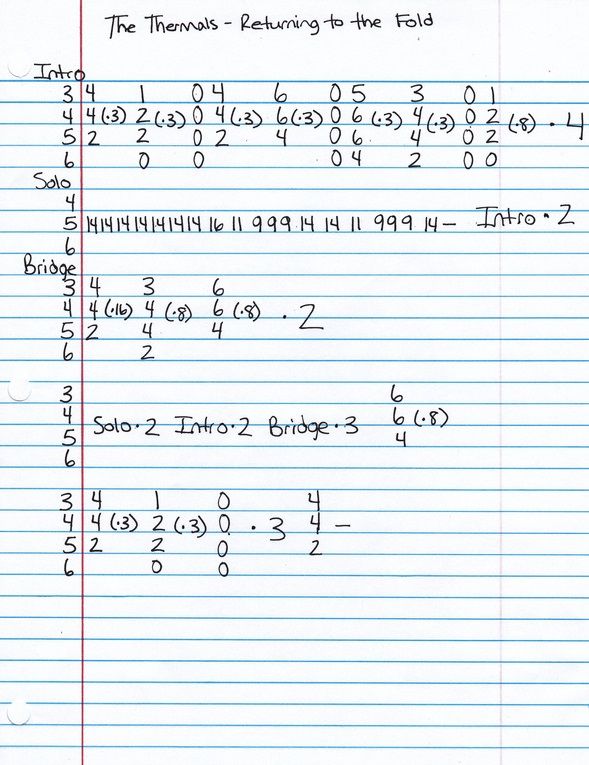 The Thermals - Returning to the Fold
Intro
3 4 1 0 4 6 0 5 3 0 1
4 4 (·3) 2 (·3) 0 4 (·3) 6 (·3) 0 6 (·3) 4 (·3) 0 2 (·8) · 4
5 2 2 0 2 4 0 6 4 0 2
6 0 0 0 4 2 0 0
Solo
4
5 14 14 14 14 14 14 14 16 11 9 9 9 14 14 11 9 9 9 14 — Intro · 2
6
Bridge
3 4 3 6
4 4 (·16) 4 (·8) 6 (·8) · 2
5 2 4 4
6 2
3 6
4 6 (·8)
Solo · 2 Intro · 2 Bridge · 3
5 4
6
3 4 1 0 4
4 4 (·3) 2 (·3) 0 · 3 4 —
5 2 2 0 2
6 0 0